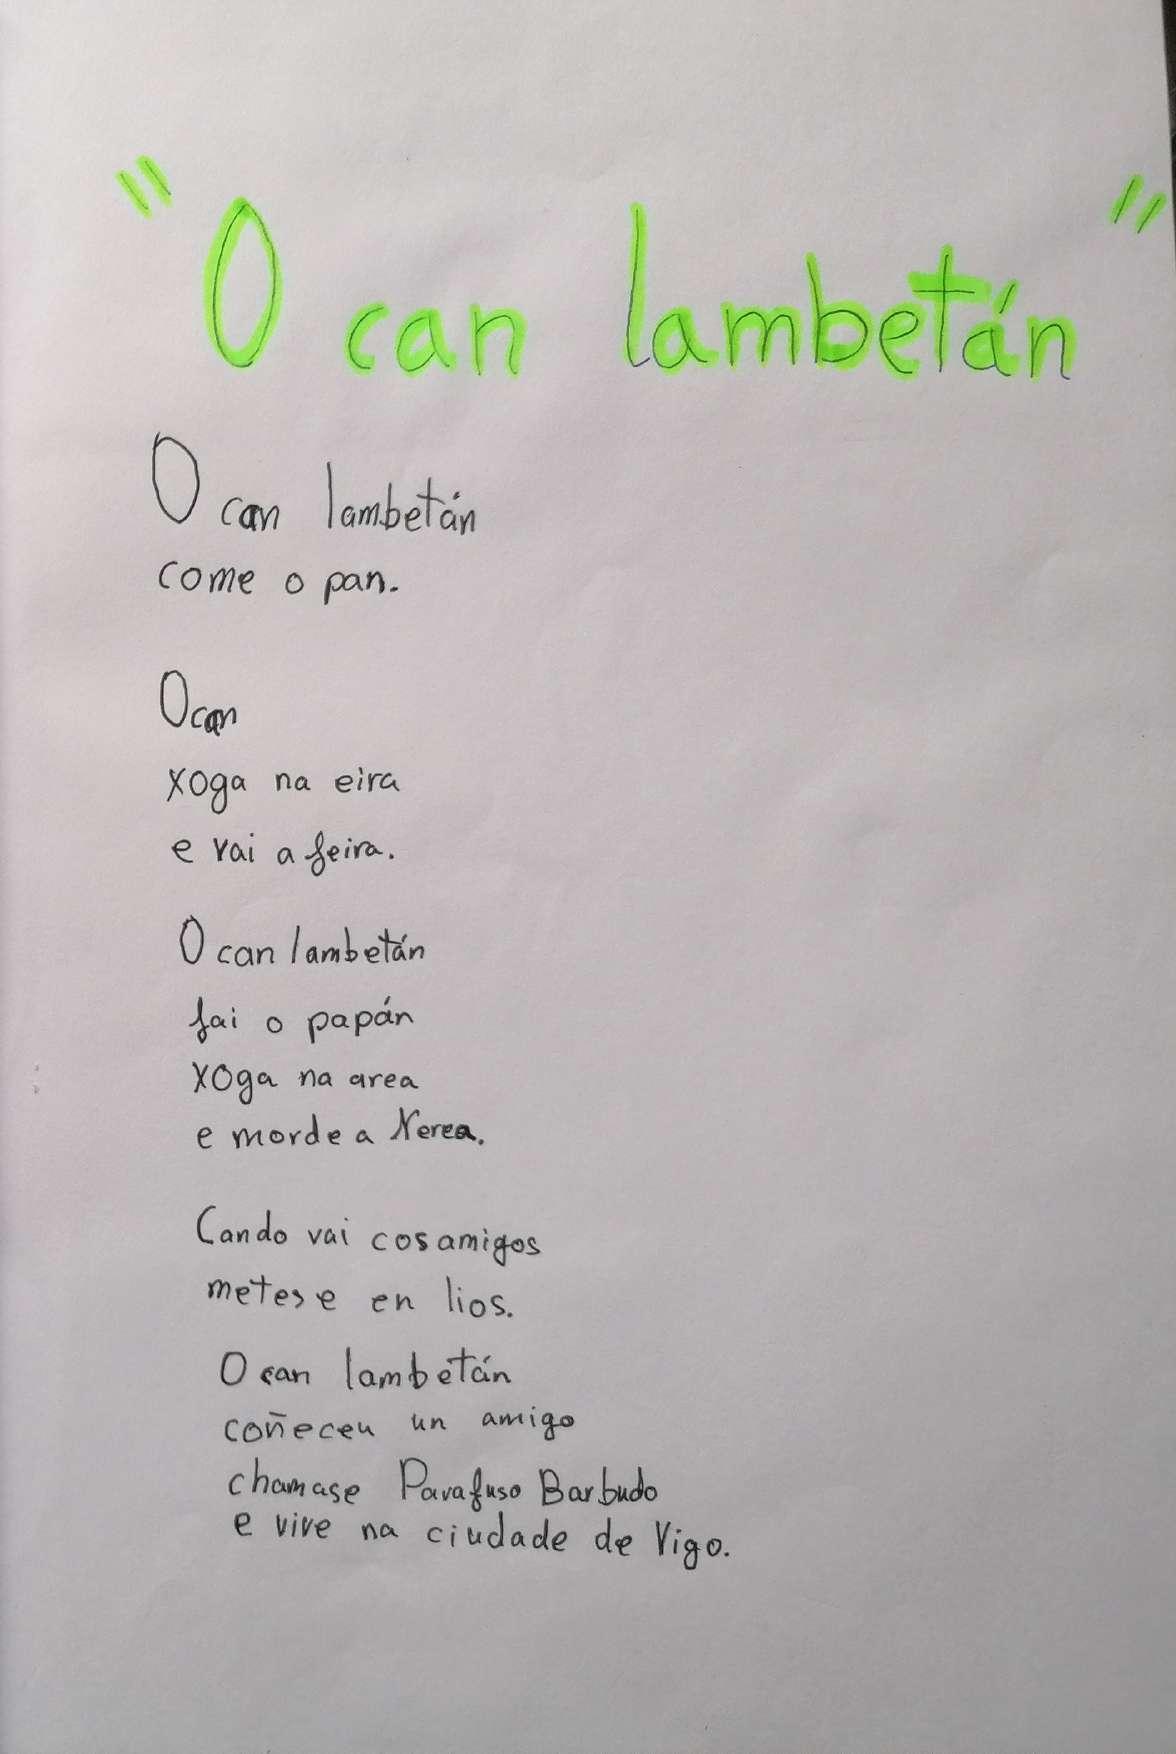 "O can lambetán"
O can lambetán
come o pan.
O can
xoga na eira
e vai a feira.
O can lambetán
fai o papán
xoga na area
e morde a Nerea.
Cando vai cos amigos
metese en lios.
O can lambetán
coñeceu un amigo
chamase Parafuso Barbudo
e vive na ciudade de Vigo.